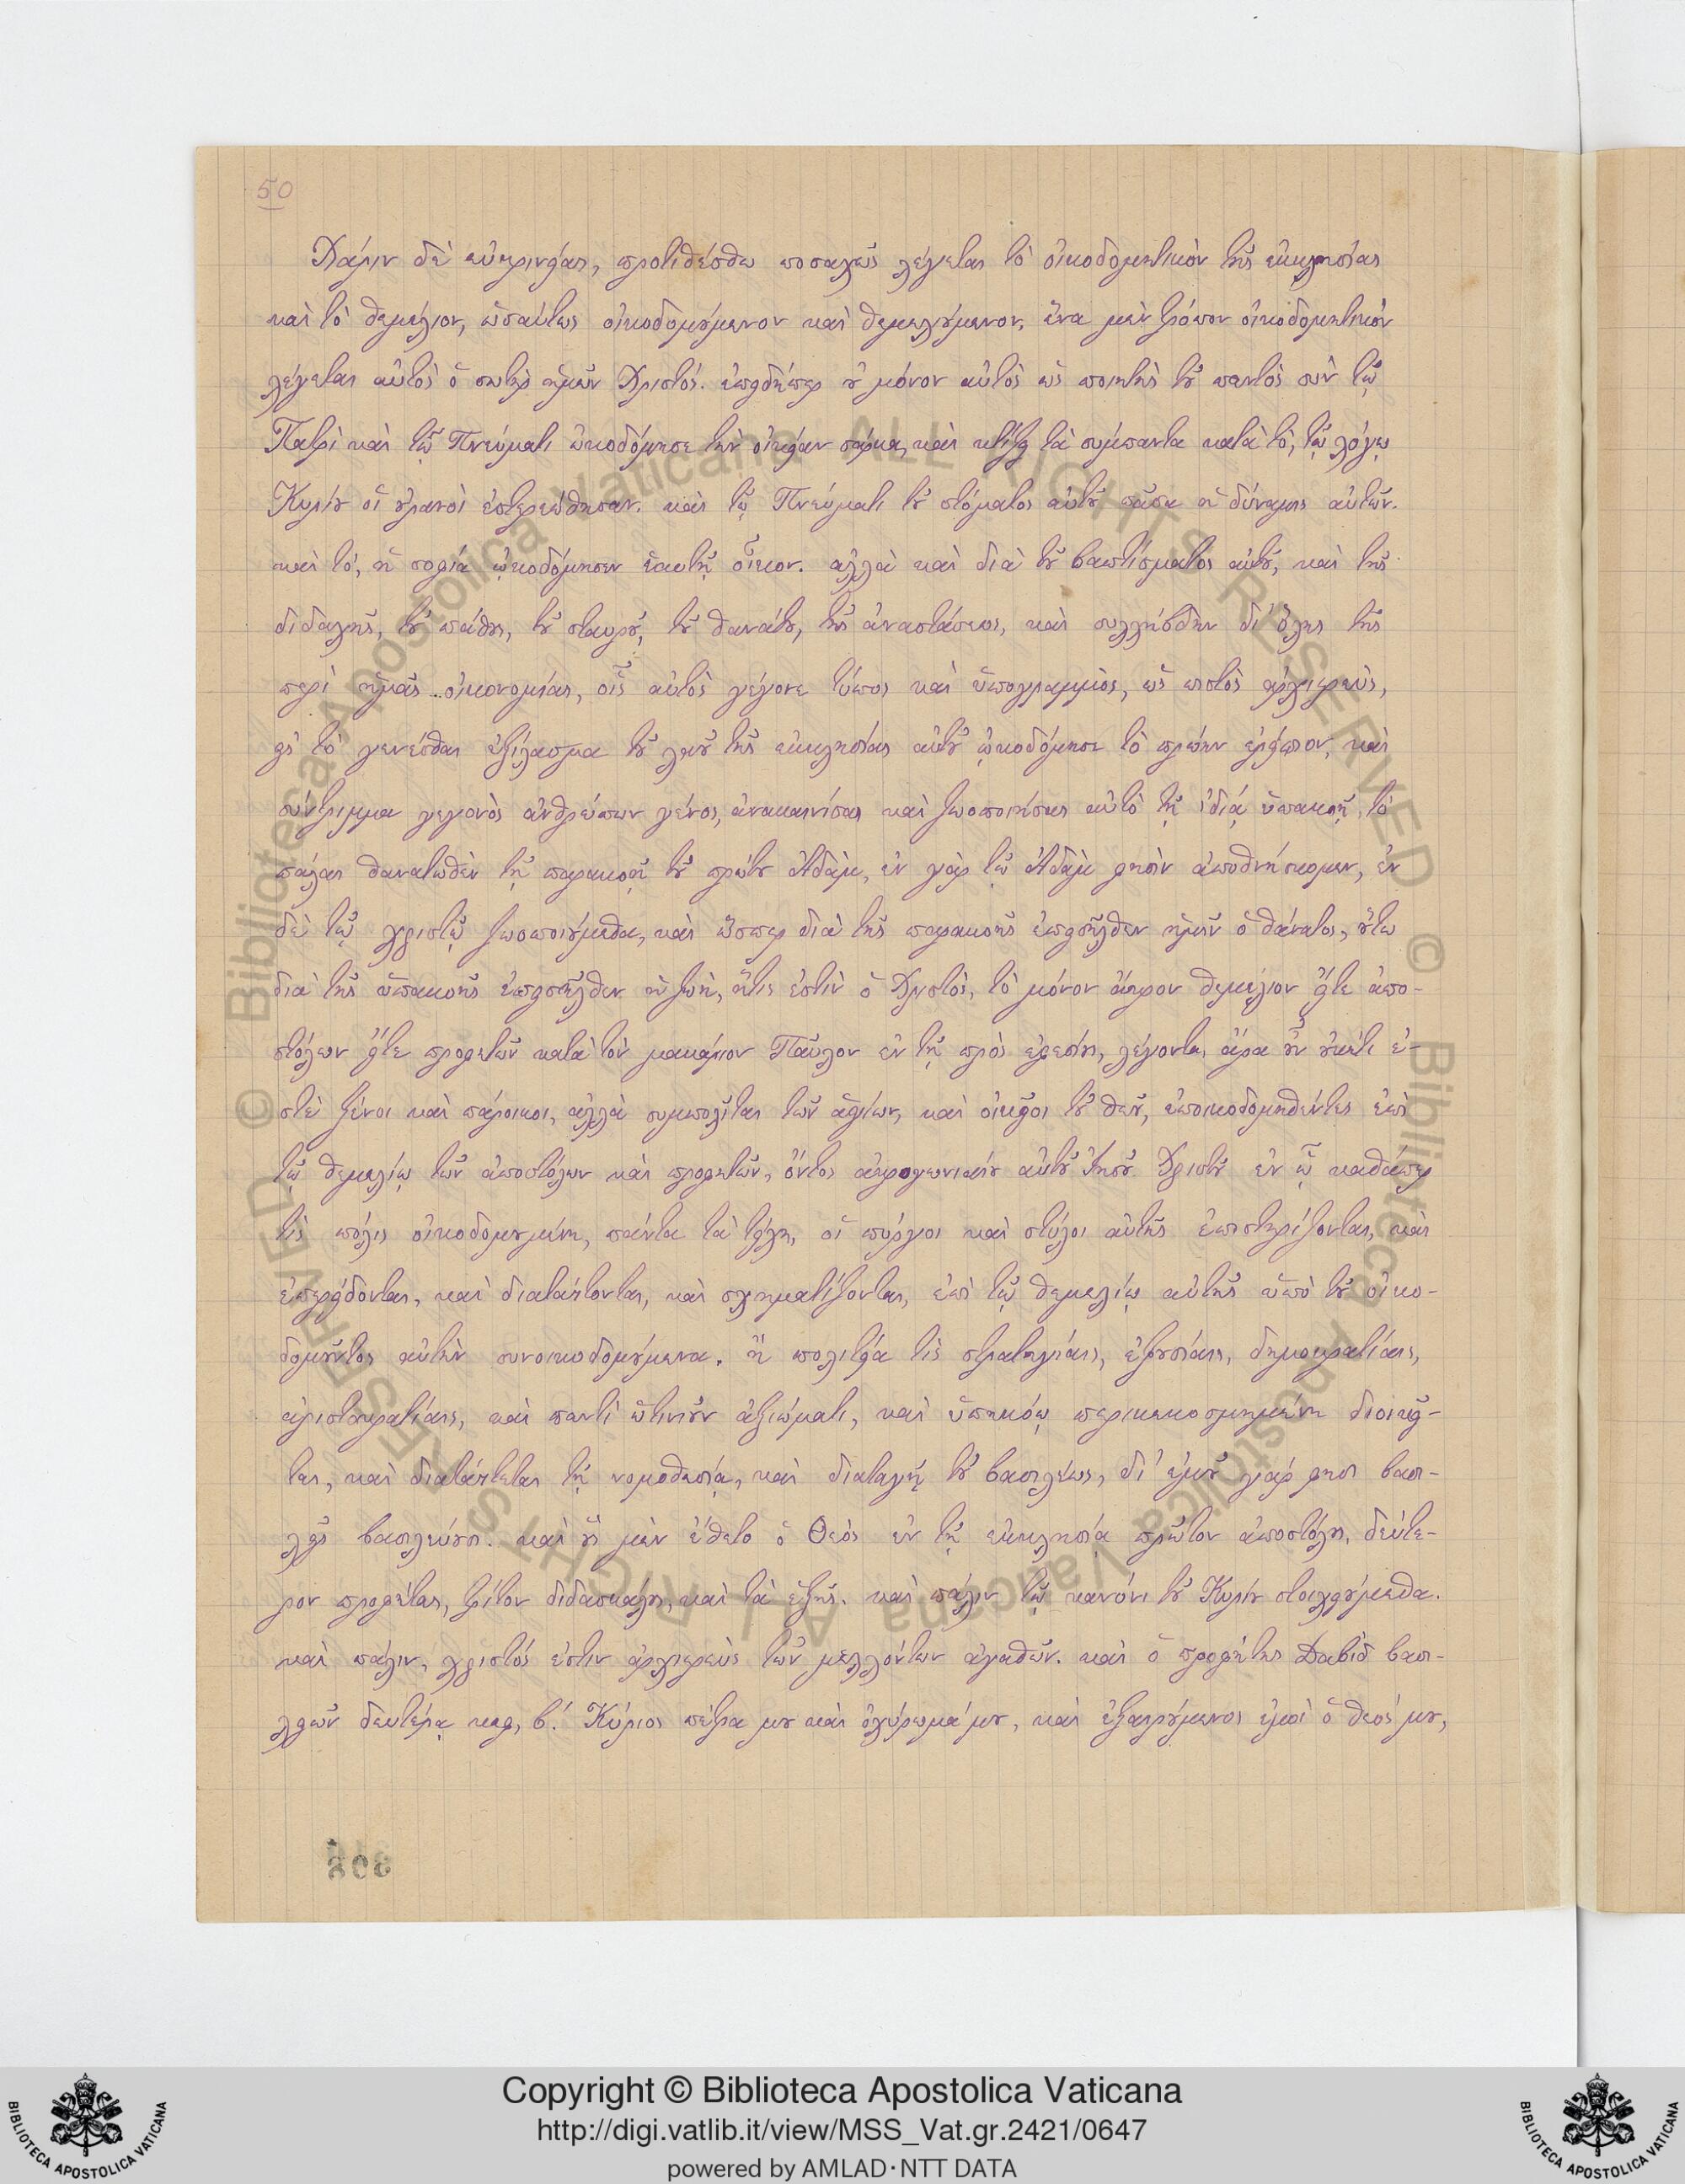 50
Χάριν δὲ εὐκρινείας, προτιθέσθω ποσαχῶς λέγεται τὸ οἰκοδομητικὸν τῆς ἐκκλησίας
καὶ τὸ θεμέλιον, ὡσαύτως οἰκοδομούμενον καὶ θεμελούμενον, ἕνα μὲν τρόπον οἰκοδομητικόν
λέγεται αὐτὸς ὁ σωτὴρ ἡμῶν Χριστός. ἐπειδήπερ οὐ μόνον αὐτὸς ὡς ποιητὴς τοῦ παντὸς σὺν τῷ
Πατρὶ καὶ τῷ Πνεύματι ᾠκοδόμησε τὴν οἰκείαν σάρκα, καὶ κτίζει τὰ σύμπαντα κατὰ τὸ, τῷ λόγῳ
Κυρίου οἱ οὐρανοὶ ἐστερεώθησαν. καὶ τῷ Πνεύματι τοῦ στόματος αὐτοῦ πᾶσα ἡ δύναμις αὐτῶν.
καὶ τό, ἡ σοφία ᾠκοδόμησεν ἑαυτῇ οἶκον. ἀλλὰ καὶ διὰ τοῦ βαπτίσματος αὐτοῦ, καὶ τῆς
διδαχῆς, τοῦ πάθους, τοῦ σταυροῦ, τοῦ θανάτου, τῆς ἀναστάσεως, καὶ συλλήβδην δι' ὅλης τῆς
περὶ ἡμᾶς οἰκονομίας, οἷς αὐτὸς γέγονε τύπος καὶ ὑπογραμμὸς, ὡς πιστὸς ἀρχιερεὺς,
εἰς τὸ γενέσθαι ἐξίλασμα τοῦ λαοῦ τῆς ἐκκλησίας αὐτοῦ ᾠκοδόμησε τὸ πρώην ἐρείπιον, καὶ
σύντριμμα γεγονὸς ἀνθρώπων γένος, ἀνακαινίσας καὶ ζωοποιήσας αὐτὸ τῇ ἰδίᾳ ὑπακοῇ, τὸ
πάλαι θανατωθὲν τῇ παρακοῇ τοῦ πρώτου Ἀδὰμ, ἐν γὰρ τῷ Ἀδὰμ φησὶν ἀποθνήσκομεν, ἐν
δὲ τῷ χριστῷ ζωοποιούμεθα, καὶ ὥσπερ διὰ τῆς παρακοῆς ἐπεισῆλθεν ἡμῖν ὁ θάνατος, οὕτω
διὰ τῆς ὑπακοῆς ἐπεισῆλθεν ἡ ζωὴ, ἥτις ἐστὶν ὁ Χριστὸς, τὸ μόνον ἄκρον θεμέλιον εἴτε ἀπο-
στόλων εἴτε προφητῶν κατὰ τὸν μακάριον Παῦλον ἐν τῇ πρὸς ἐφεσίους, λέγοντα, ἄρα οὖν οὐκέτι ἐ-
στὲ ξένοι καὶ πάροικοι, ἀλλὰ συμπολῖται τῶν ἁγίων, καὶ οἰκεῖοι τοῦ θεοῦ, ἐποικοδομηθέντες ἐπὶ
τῷ θεμελίῳ τῶν ἀποστόλων καὶ προφητῶν, ὄντος ἀκρογωνιαίου αὐτοῦ Ἰησοῦ Χριστοῦ ἐν ᾧ καθάπερ
τὶς πόλις οἰκοδομουμένη, πάντα τὰ τείχη, οἱ πύργοι καὶ στύλοι αὐτῆς ἐπιστηρίζονται, καὶ
ἐπερείδονται, καὶ διατάττονται, καὶ σχηματίζονται, ἐπὶ τῷ θεμελίῳ αὐτῆς ὑπὸ τοῦ οἰκο-
δομοῦντος αὐτὴν συνοικοδομούμενα. ἢ πολιτεία τὶς στρατηγίαις, ἐξουσίαις, δημοκρατίαις,
ἀριστοκρατίαις, καὶ παντὶ ᾡτινιοῦν ἀξιώματι, καὶ ὑπηκόῳ περικεκοσμημένη διοικεῖ-
ται, καὶ διατάττεται τῇ νομοθεσίᾳ, καὶ διαταγῇ τοῦ βασιλέως, δι' ἐμοῦ γὰρ φησι βασι-
λεῖς βασιλεύουσι. καὶ οὓς μὲν ἔθετο ὁ Θεὸς ἐν τῇ ἐκκλησίᾳ πρῶτον ἀποστόλους, δεύτε-
ρον προφήτας, τρίτον διδασκάλους, καὶ τὰ ἑξῆς. καὶ πάλιν τῷ κανόνι τοῦ Κυρίου στοιχειούμεθα.
καὶ πάλιν, χριστός ἐστιν ἀρχιερεὺς τῶν μελλόντων ἀγαθῶν. καὶ ὁ προφήτης Δαβὶδ βασι-
λειῶν δευτέρᾳ κεφ, β'. Κύριος πέτρα μου καὶ ὀχύρωμά μου, καὶ ἐξαιρούμενος ἐμοὶ ὁ θεός μου,
Copyright © Biblioteca Apostolica Vaticana
http://digi.vatlib.it/view/MSS_Vat.gr.2421/0647
powered by AMLAD·NTT DATA